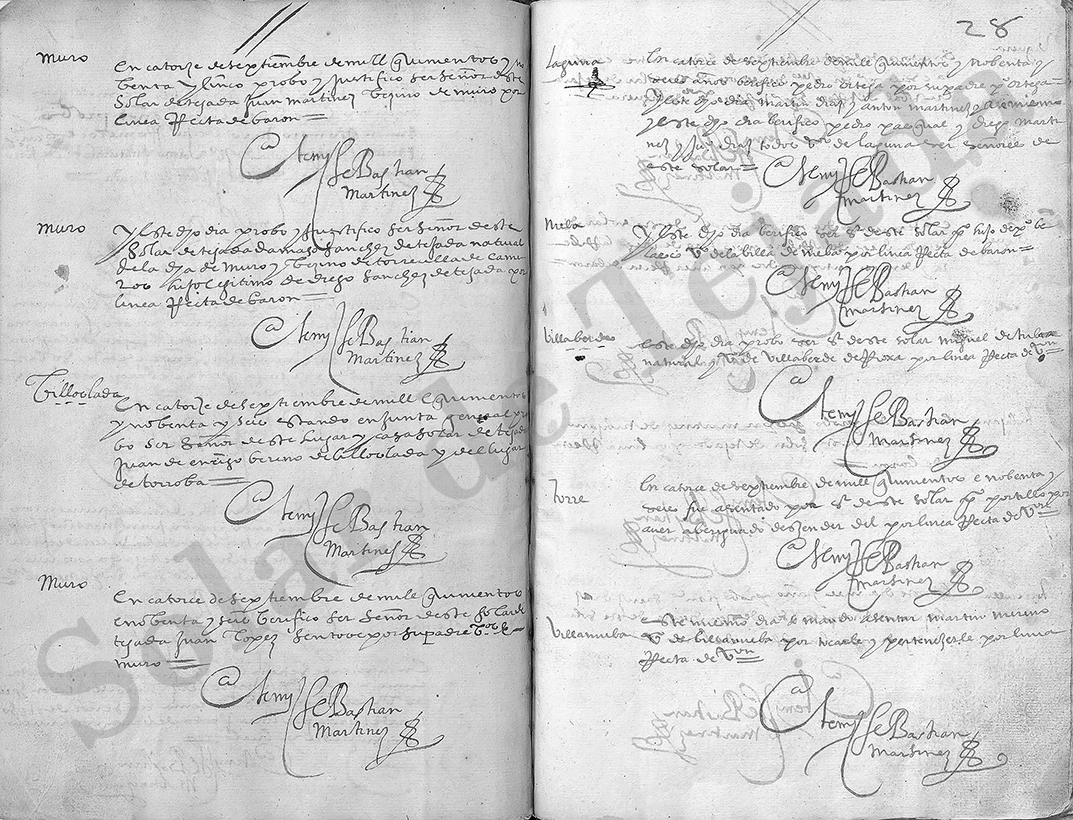 Muro
En catorze de septiembre de mill quinientos y no
benta y cinco probo y justifico ser señor deste
Solar de tejada Juan martinez bezino de muro por
linea Recta de baron
Ante mi Sebastian
Martinez
Muro
Y este dho dia probo y justifico ser señor de este
Solar de tejada damaso sanchez de tejada natural
de la dha de muro y bezino de torrezilla de came
ros hijo lejitimo de diego sanchez de tejada por
linea Recta de baron
Ante mi Sebastian
Martinez
Billoslada
En catorze de septiembre de mill quinientos
y nobenta y seis estando en junta general pro
bo ser señor de este lugar y casa solar de tejada
Juan de enciso bezino de billoslada y del lugar
de torroba
Ante mi Sebastian
Martinez
Muro
En catorce de septiembre de mill quinientos
e nobenta y seis berifico ser señor deste solar de
tejada Juan Lopez por su padre
muro
Ante mi Sebastian
Martinez
28
Laguna
En catorce de septiembre de mill quinientos y nobenta y
seis años berifico pedro ortega por su padre p ortega
Y este dho dia martin diaz y anton martinez
y este dho dia berifico pedro pasqual y diego marti
nez y juº diaz todos vºs de laguna ser señores de
este solar
Ante mi Sebastian
Martinez
Nieba
Y este dho dia berifico ser sr de este solar
vº de la billa de nieba por linea Recta de baron
Ante mi Sebastian
Martinez
Villaberde
Este dho dia probo ser sr de este solar miguel de
natural y vº de Villaberde de Rioxa por linea Recta de Von
Ante mi Sebastian
Martinez
Torre
En catorce de septiembre de mill quinientos e nobenta y
seis fue asentado por sr de este solar portillo por
aver aberiguado deszender del por linea Recta de Von
Ante mi Sebastian
Martinez
Villanueba
Este mismo dia se mando asentar martin moreno
vº de billanueba por tocarle y pertenezerle por linea
Recta de Von
Ante mi Sebastian
Martinez
Solar de Tejada